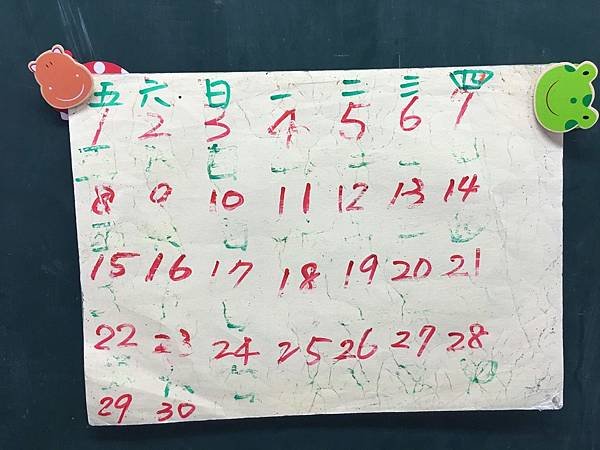 五 六 日 一 二 三 四
1 2 3 4 5 6 7
8 9 10 11 12 13 14
15 16 17 18 19 20 21
22 23 24 25 26 27 28
29 30